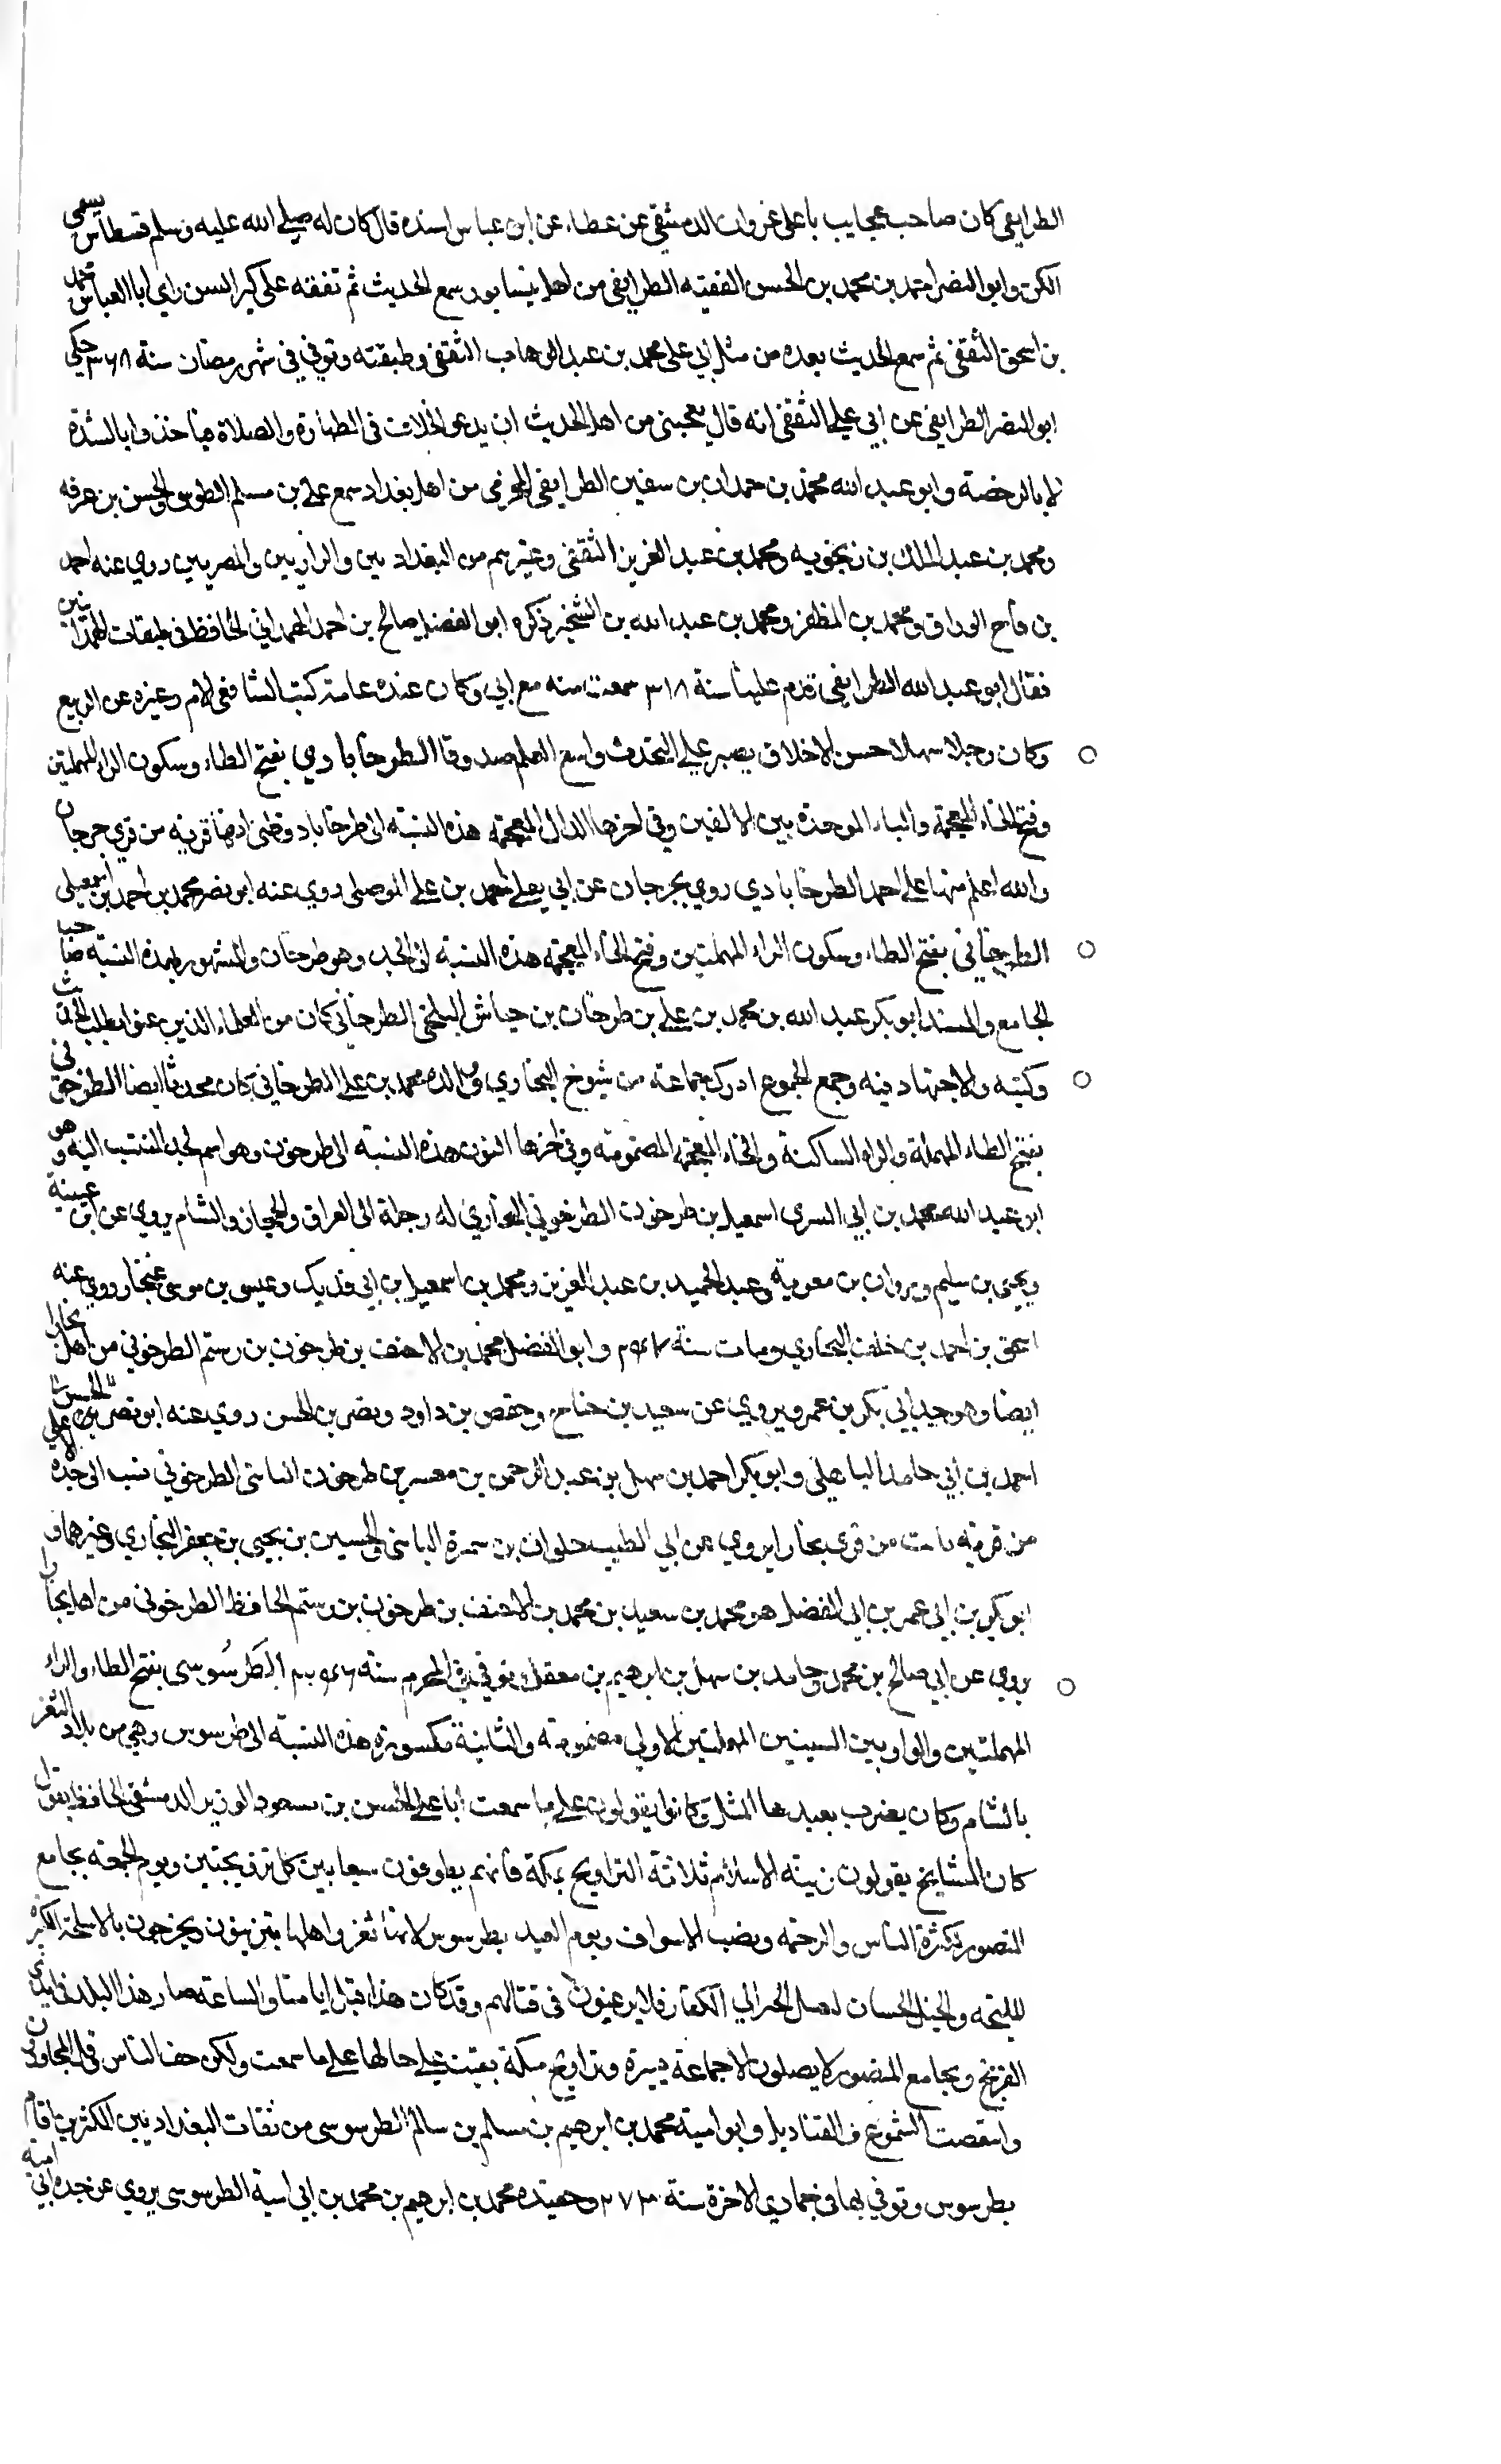 الطرايفي كان صاحب عجايب با على غزوان الدمشقي عن عطاء عن ابن عباس اسنده قال كان له صلى الله عليه وسلم فسطاس يسمى
الكن وابو النضر احمد بن محمد بن الحسن الفقيه الطرايفي من اهل نيسابور سمع الحديث ثم تفقه على كبر السن راى ابا العباس محمد
بن اسحق الثقفي ثم سمع الحديث بعده من مثل ابي على محمد بن عبد الوهاب الثقفي وطبقته وتوفي في شهر رمضان سنة ٣٦٨ حكى
ابو النضر الطرايفي عن ابي على الثقفي انه قال يعجبني من اهل الحديث ان يدعوا الخلاف في الطهارة والصلاة فياخذوا بالشدة
لا بالرخصة وابو عبد الله محمد بن حمدان بن سفين الطرايفي المخرمي من اهل بغداد سمع على بن مسلم الطوسي والحسن بن عرفه
ومحمد بن عبد الملك بن زنجويه ومحمد بن عبد العزيز الثقفي وغيرهم من البغداديين والرازيين والمصريين روي عنه احمد
بن فتح الوراق ومحمد بن المظفر ومحمد بن عبد الله بن الشخير ذكره ابو الفضل صالح بن احمد الهمداني الحافظ في طبقات الهمدانيين
فقال ابو عبد الله الطرايفي قدم علينا سنة ٣١٨ سمعت منه مع ابي وكان عنده عامة كتب الشافعي الام وغيره عن الربيع
وكان رجلا سهلا حسن الاخلاق يصبر على التحدث واسع العلم صدوقا الطرخاباذي بفتح الطاء وسكون الراء المهملتين
وفتح الخاء المعجمة والباء الموحدة بين الالفين وفي اخرها الدال المعجمة هذه النسبة الى طرخاباد وظني انها قرية من قرى جرجان
والله اعلم منها على احمد الطرخابادي روي بجرجان عن ابي يعلى احمد بن على الموصلي روي عنه ابو نصر محمد بن احمد بن اسمعيلي
الطرخاني بفتح الطاء وسكون الراء المهملتين وفتح الخاء المعجمة هذه النسبة الى الجد وهو طرخان والمشهور بهذه النسبة صاحب
الجامع والمسند ابو بكر عبد الله بن محمد بن على بن طرخان بن جباش البلخي الطرخاني كان من العلماء الذين عنوا بطلب الحديث
وكتبه والاجتهاد فيه وجمع الجموع ادرك جماعة من شيوخ البخاري ووالده محمد بن على الطرخاني كان محدثا ايضا الطرخوني
بفتح الطاء المهملة والراء الساكنة والخاء المعجمة المضمومة وفي اخرها النون هذه النسبة الى طرخون وهو اسم لجد المنتسب اليه وهو
ابو عبد الله محمد بن ابي السرى اسمعيل بن طرخون الطرخوني البخاري له رحلة الى العراق والحجاز والشام يروي عن ابن عيينة
ويحيى بن سليم ومروان بن معوية وعبد الحميد بن عبد العزيز ومحمد بن اسمعيل بن ابي فديك وعيسى بن موسى غنجار روي عنه
اسحق بن احمد بن خلف البخاري ومات سنة وابو الفضل محمد بن الاحنف بن طرخون بن رستم الطرخوني من اهل بخارا
ايضا وهو جد ابي بكر بن عمر ويروي عن سعيد بن جناح وحفص بن داود ونصر بن الحسن روي عنه ابو نصر
احمد بن ابي حامد الباهلي وابو بكر احمد بن سهل بن عبد الرحمن بن معبد بن طرخون الطرخوني نسب الى جده الاعلى
من قرية من قرى بخارا يروي عن ابي الطيب حلوان بن سمرة والحسين بن يحيى بن جعفر البخاري وغيرهما و
ابو بكر بن ابي عمر بن ابي الفضل هو محمد بن سعيد بن محمد بن الاحنف بن طرخون بن رستم الحافظ الطرخوني من اهل بخارا
يروي عن ابي صالح بن محمد وحامد بن سهل بن ابرهيم بن معقل توفي في المحرم سنة الطرسوسي بفتح الطاء والراء
المهملتين والواو بين السينين المهملتين الاولى مضمومة والثانية مكسورة هذه النسبة الى طرسوس وهي من بلاد الثغر
بالشام وكان يضرب بعيدها المثل وكانوا يقولون على ما سمعت ابا على الحسن بن مسعود الوزير الدمشقي الحافظ يقول
كان المشايخ يقولون زينة الاسلام ثلاثة التراويح بمكة فانهم يطوفون سبعا بين كل ترويحتين ويوم الجمعة بجامع
المنصور لكثرة الناس والزحمة ونصب الاسواق ويوم العيد بطرسوس لانها ثغر واهلها يتزينون ويخرجون بالاسلحة الكثيرة
المليحة والخيل الحسان ليصل الخبر الى الكفار فلا يرغبون في قتالهم وقد كان هذا قبل ايامنا والساعة صار هذا البلد في ايدي
الفرنج وبجامع المنصور لا يصلون الا جماعة يسيرة وتراويح مكة بقيت على حالها على ما سمعت ولكن خف الناس وقل المجاورون
وانتقصت الشموع والقناديل وابو امية محمد بن ابرهيم بن مسلم بن سالم الطرسوسي من ثقات البغداديين اكثر من اقام
بطرسوس وتوفي بها في جمادي الاخرة سنة ٢٧٣ وحفيده محمد بن ابرهيم بن محمد بن ابي امية الطرسوسي يروي عن جده ابي امية